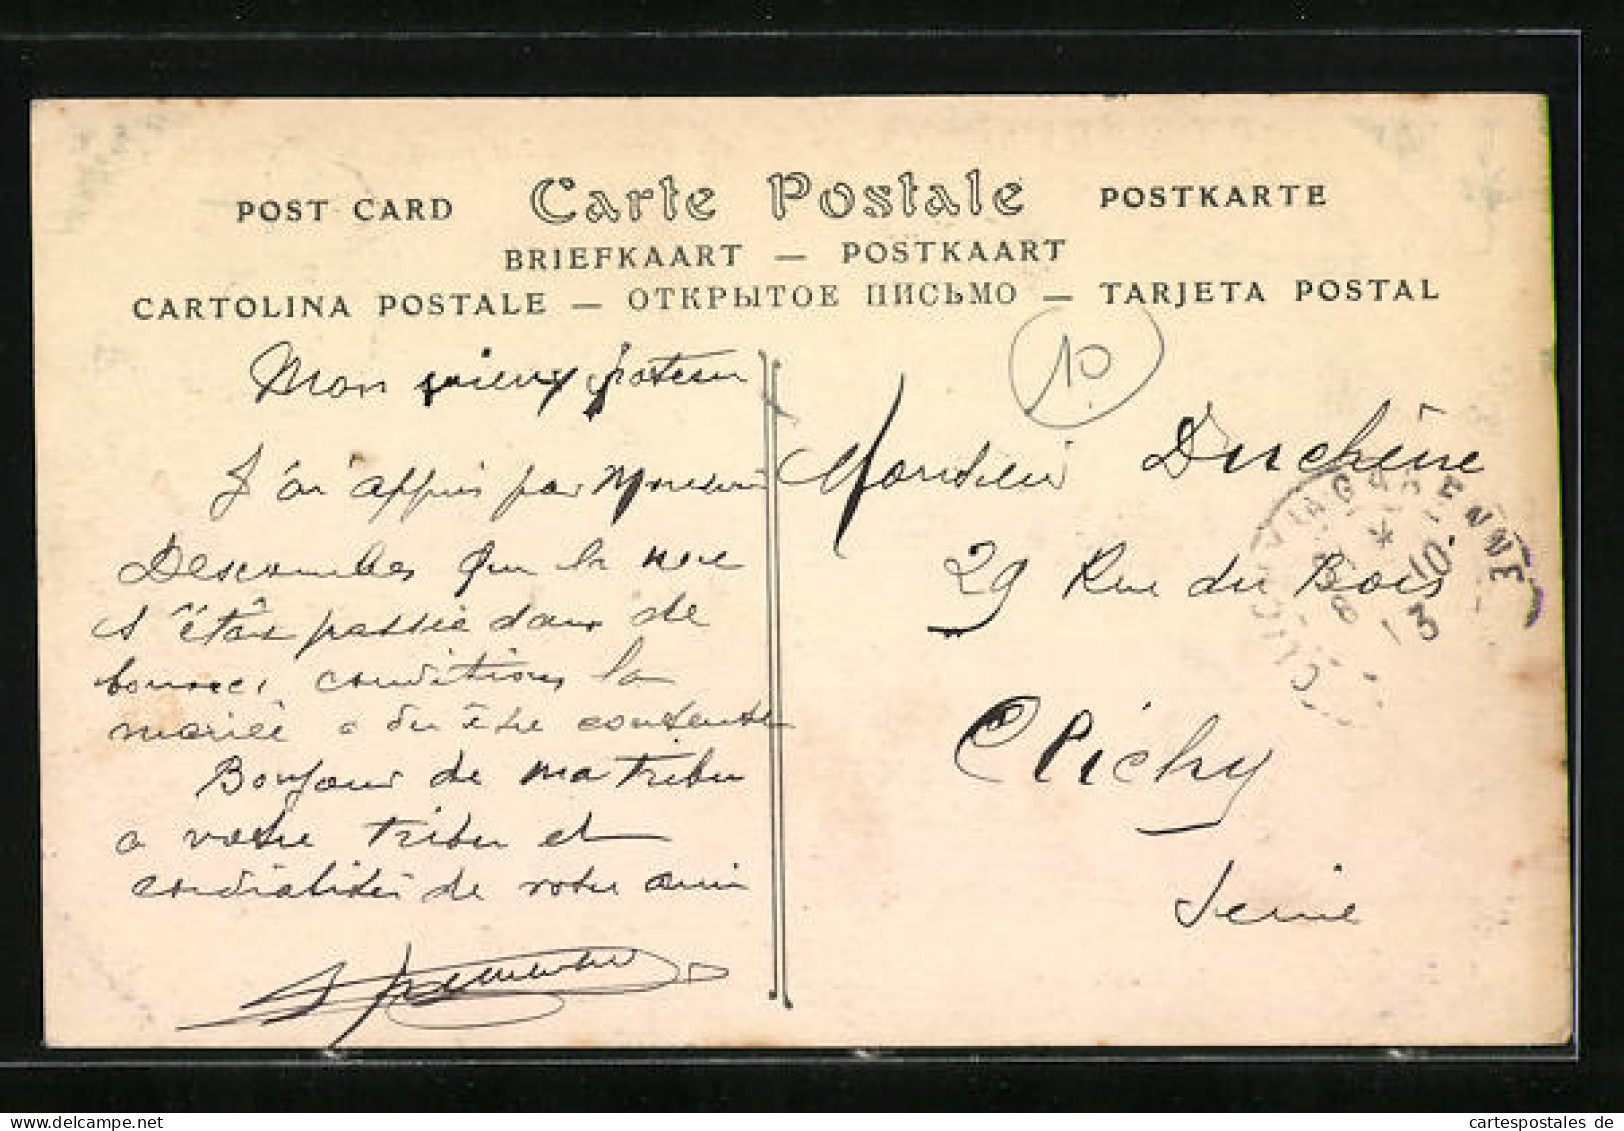 POST CARD Carte Postale POSTKARTE
BRIEFKAART — POSTKAART
CARTOLINA POSTALE — ОТКРЫТОЕ ПИСЬМО — TARJETA POSTAL
10
Mon vieux poteau
J'ai appris par Monsieur
Descombes que la noce
s'était passée dans de
bonnes conditions la
mariée a du être contente
Bonjour de ma tribu
a votre tribu et
cordialités de votre ami
Monsieur Duchêne
29 Rue du Bois
Clichy
Seine
CLICHY LA GARENNE
* 10
13
cartespostales de